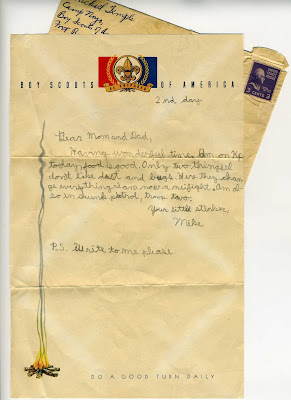 Camp
Boy Scouts
3 CENTS 3
BOY SCOUTS OF AMERICA
2nd day
Dear Mom and Dad,
Having wonderful time. Am on Kp
today, food is good. Only two things I
dont like dust and bugs. Here they chan
ge everything
so in skunk patrol, troop two.
Your little stinker,
Mike
P.S. Write to me please
DO A GOOD TURN DAILY